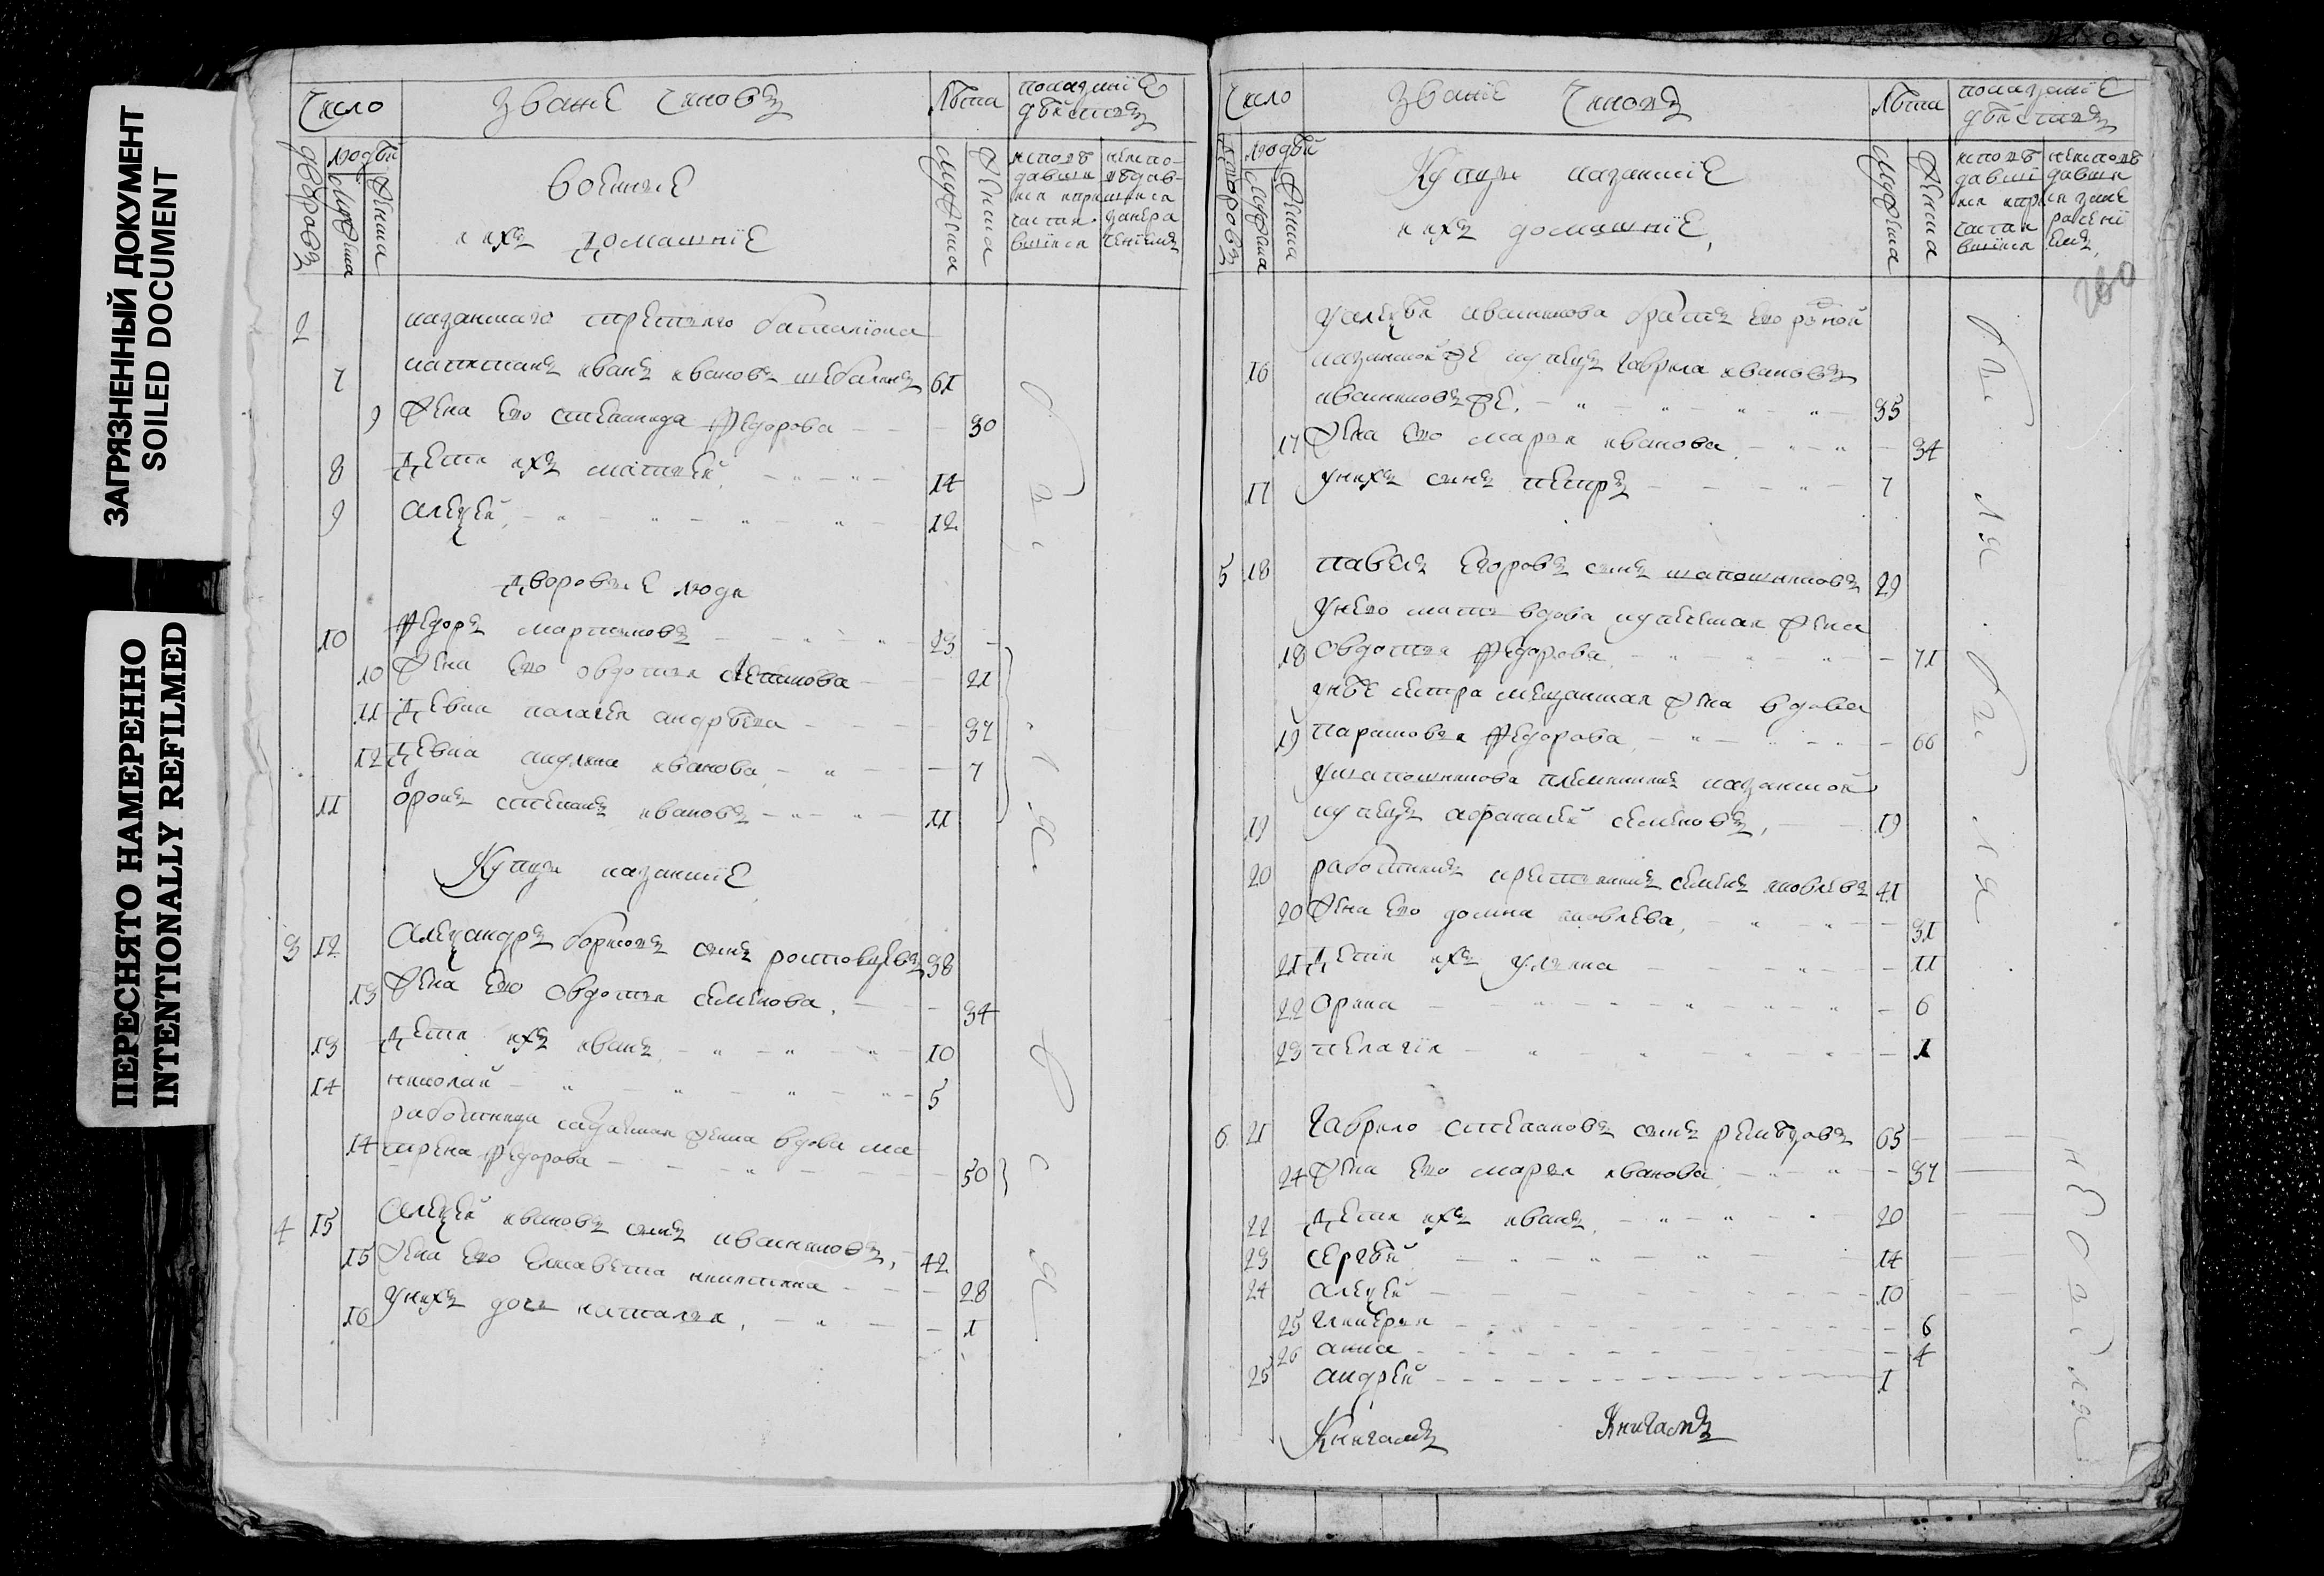 ЗАГРЯЗНЕННЫЙ ДОКУМЕНТ
SOILED DOCUMENT
ПЕРЕСНЯТО НАМЕРЕННО
INTENTIONALLY REFILMED
Число
Званіе чиновъ
Лѣта
показаніе дѣйства
дворовъ
людей
мужеска
женска
военные
и ихъ домашніе
мужеска
женска
исповѣдавшихся и причастившихся
2
казанскаго третьяго баталіона
7 капитанъ иванъ ивановъ 61
9 жена ево степанида федорова 30
8 дети ихъ матвей 14
9 алеѯей 12
дворовые люди
10 федоръ мартыновъ 23
10 жена ево овдотья 21
11 девка палагея андрѣева 37
12 девка акулина иванова 7
11 степанъ ивановъ 11
Купцы казанскіе
3 12 Алеѯандръ борисовъ сынъ ростовцевъ 38
13 жена ево овдотья семенова 34
13 дети ихъ иванъ 10
14 николай 5
работница жена вдова ма
14 трена федорова 50
4 15 Алеѯей ивановъ сынъ иконниковъ 42
15 жена ево елисавета никитина 28
16 у нихъ дочь наталья 1
Число
Званіе чиновъ
Лѣта
показаніе дѣйства
дворовъ
людей
мужеска
женска
Купцы казанскіе
и ихъ домашніе
мужеска
женска
260
у алеѯѣя иконникова братъ ево родной
16 казанской же купецъ гаврила ивановъ
иконниковъ же 35
17 жена ево марья иванова 34
17 у нихъ сынъ петръ 7
5 18 павелъ егоровъ сынъ шапошниковъ 29
у него мать вдова купецкая жена
18 овдотья федорова 71
у неѣ сестра мещанская жена вдова
19 парасковья федорова 66
у шапошникова племянникъ казанской
19 купецъ афанасей семеновъ 19
20 работникъ крестьянинъ семенъ яковлевъ 41
20 жена ево домна яковлева 31
21 дети ихъ ульяна 11
22 орина 6
23 пелагія 1
6 21 гаврило степановъ сынъ ремѣзовъ 65
24 жена ево марья иванова 37
22 дети ихъ иванъ 20
23 сергѣй 14
24 алеѯей 10
25 гликерия 6
26 анна 4
25 андрей 1
Книгамъ Книгамъ